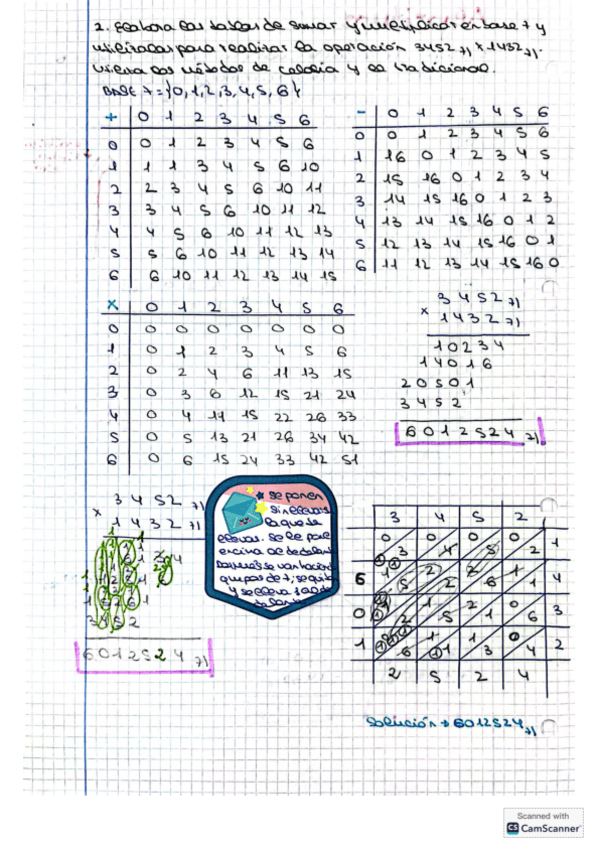 2. Elabora las tablas de sumar y multiplicar en base 7 y
utilizalas para realizar la operación 3452 7) x 1432 7).
Utiliza los métodos de celosía y el tradicional.
BASE 7 = {0, 1, 2, 3, 4, 5, 6}
+ 0 1 2 3 4 5 6
0 0 1 2 3 4 5 6
1 1 1 3 4 5 6 10
2 2 3 4 5 6 10 11
3 3 4 5 6 10 11 12
4 4 5 6 10 11 12 13
5 5 6 10 11 12 13 14
6 6 10 11 12 13 14 15
- 0 1 2 3 4 5 6
0 0 1 2 3 4 5 6
1 16 0 1 2 3 4 5
2 15 16 0 1 2 3 4
3 14 15 16 0 1 2 3
4 13 14 15 16 0 1 2
5 12 13 14 15 16 0 1
6 11 12 13 14 15 16 0
x 0 1 2 3 4 5 6
0 0 0 0 0 0 0 0
1 0 1 2 3 4 5 6
2 0 2 4 6 11 13 15
3 0 3 6 12 15 21 24
4 0 4 11 15 22 26 33
5 0 5 13 21 26 34 42
6 0 6 15 24 33 42 51
3452 7)
x 1432 7)
10234
14016
20501
3452
6012524 7)
3452 7)
x 1432 7)
3452
6012524 7)
se ponen
sin llevar
la que se
se lleva
3 4 5 2
1
6 4
0 3
1 2
2 5 2 4
Solución → 6012524 7)
Scanned with
CS CamScanner